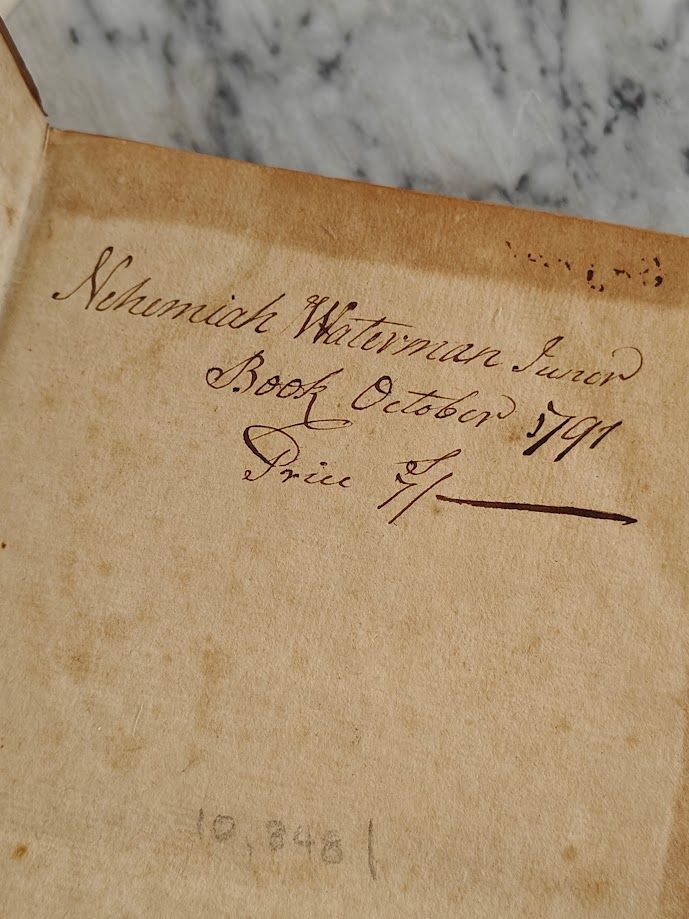 Nehemiah Waterman Junor
Book October 1791
Price 7/
10,848